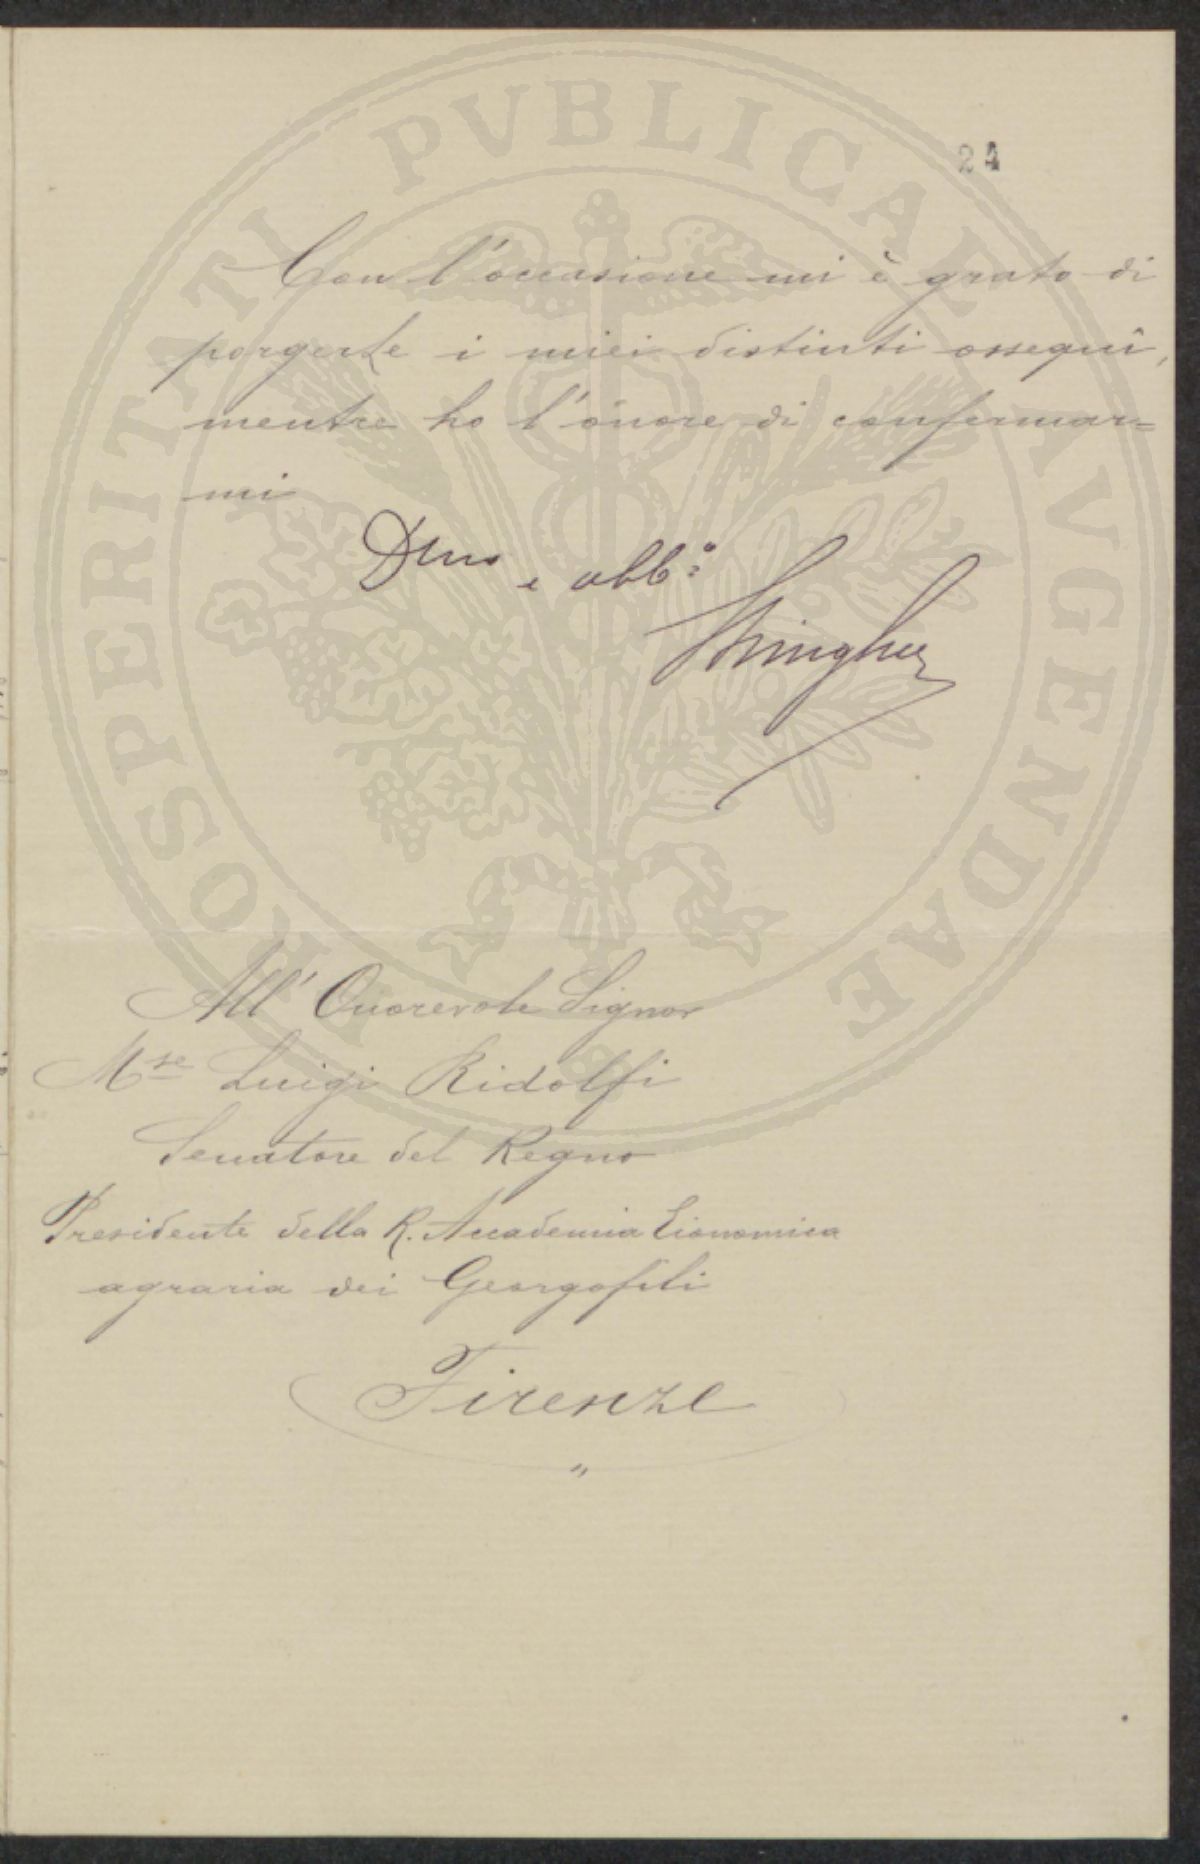 24
PROSPERITATI PVBLICAE AVGENDAE
Con l'occasione mi è grato di
porgerLe i miei distinti ossequî,
mentre ho l'onore di confermar=
mi
Dmo e obb.o
Stringher
All' Onorevole Signor
Mse Luigi Ridolfi
Senatore del Regno
Presidente della R. Accademia Economica
agraria dei Georgofili
Firenze
"